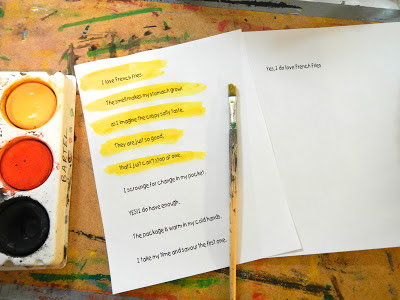 I love french fries.
The smell makes my stomach growl
as I imagine the crispy salty taste.
They are just so good,
that I just can't stop at one.
I scrounge for change in my pocket.
YES! I do have enough.
The package is warm in my cold hands.
I take my time and savour the first one.
Yes, I do love French fries